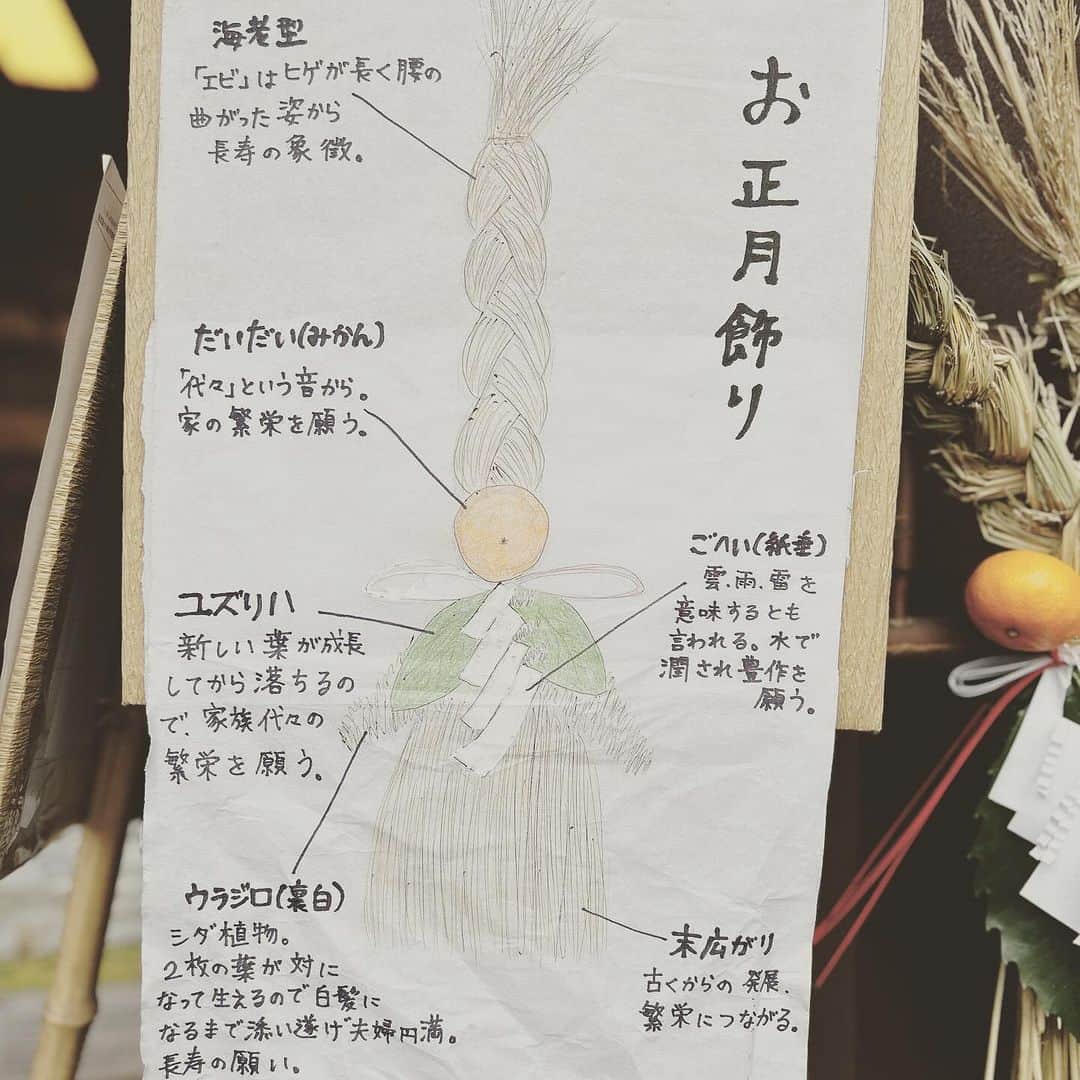 お正月飾り
海老型
「エビ」はヒゲが長く腰の
曲がった姿から
長寿の象徴。
だいだい(みかん)
「代々」という音から。
家の繁栄を願う。
ごへい(紙垂)
雲、雨、雷を
意味するとも
言われる。水で
潤され豊作を
願う。
ユズリハ
新しい葉が成長
してから落ちるの
で、家族代々の
繁栄を願う。
ウラジロ(裏白)
シダ植物。
2枚の葉が対に
なって生えるので白髪に
なるまで添い遂げ夫婦円満。
長寿の願い。
末広がり
古くからの発展、
繁栄につながる。